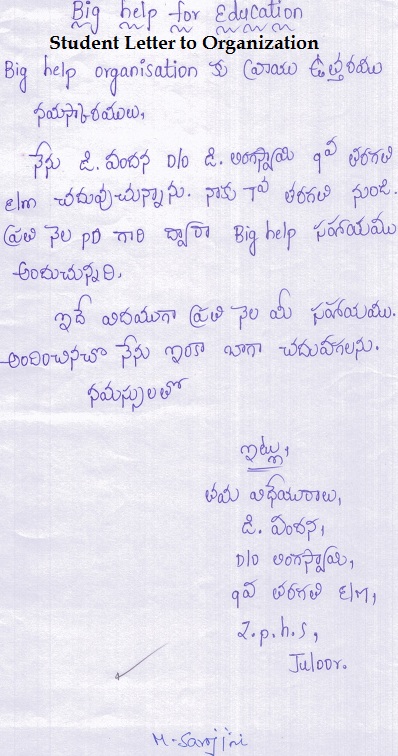 Big help for Education
Student Letter to Organization
Big help organisation కు వ్రాయు ఉత్తరము
నమస్కారములు,
నేను డి. వందన D/o డి. లింగస్వామి 9వ తరగతి
E/m చదువుచున్నాను. నాకు 7వ తరగతి నుండి.
ప్రతి నెల PD గారి ద్వారా Big help సహాయము
అందుచున్నది.
ఇదే విదముగా ప్రతి నెల మీ సహాయము.
అందించినచో నేను ఇంకా బాగా చదువగలను.
నమస్సులతో
ఇట్లు,
తమ విధేయురాలు,
డి. వందన,
D/o లింగస్వామి,
9వ తరగతి E/m,
Z.p.h.s,
Juloor.
M-Sarojini